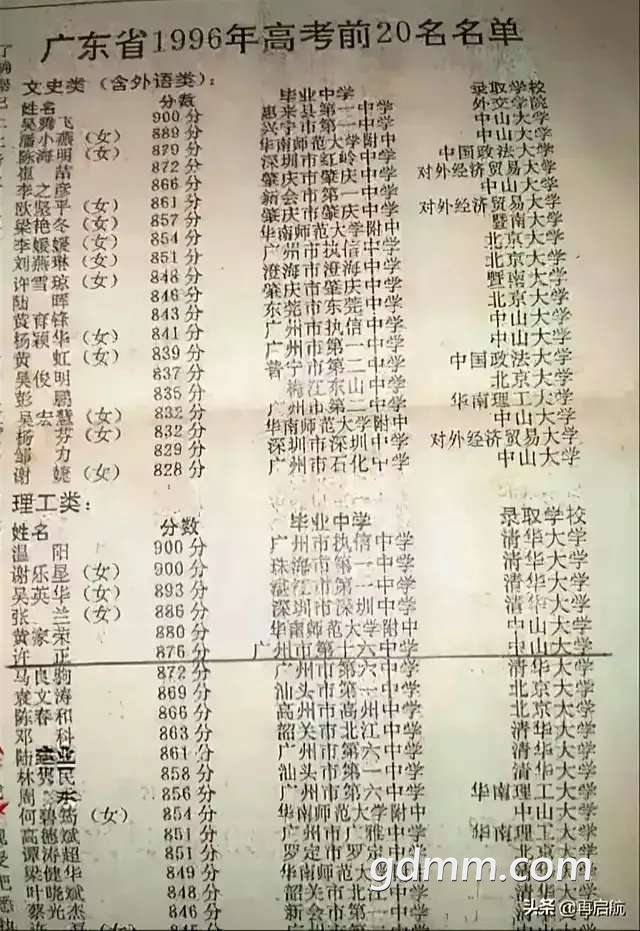 广东省1996年高考前20名名单
文史类（含外语类）：
姓名 分数 毕业中学 录取学校
吴腾飞 900分 惠来县第一中学 外交学院
潘小燕（女） 889分 兴宁市第一中学 中山大学
陈海明（女） 879分 华南师范大学附中 中山大学
崔喆 872分 深圳市红岭中学 中国政法大学
李之彦 866分 肇庆市肇庆中学 对外经济贸易大学
欧坚平（女） 861分 新会市第一中学 中山大学
梁艳冬（女） 857分 肇庆市肇庆中学 对外经济贸易大学
李媛媛（女） 854分 华南师范大学附中 暨南大学
刘燕琳（女） 851分 广州市执信中学 北京大学
许雪琼（女） 848分 澄海市澄海中学 北京大学
陆晖 846分 肇庆市肇庆中学 暨南大学
黄育锋 843分 东莞市东莞中学 北京大学
杨颖华（女） 841分 广州市执信中学 中山大学
黄虹（女） 839分 广州市第一中学 中山大学
吴俊明 837分 普宁市第二中学 中国政法大学
彭鹏 835分 梅江东山中学 北京大学
吴宏慧（女） 832分 广州市第二中学 华南理工大学
杨芬（女） 832分 华南师范大学附中 中山大学
邹力 829分 深圳市深圳中学 对外经济贸易大学
谢婕（女） 828分 广州市石化中学 中山大学
理工类：
姓名 分数 毕业中学 录取学校
温阳 900分 广州市执信中学 清华大学
谢乐垦（女） 900分 珠海市第一中学 清华大学
吴英华（女） 893分 湛江市第一中学 清华大学
张兰（女） 886分 深圳市深圳中学 清华大学
黄家荣 880分 华南师范大学附中 中山大学
许正 876分 广州市第十六中学 中山大学
马良驹 872分 广州市第六中学 清华大学
袁文涛 869分 汕头市第一中学 北京大学
陈春和 866分 高州市高州中学 北京大学
邓科 863分 韶关市北江中学 清华大学
陆业 861分 广州市第六中学 清华大学
林民 858分 汕头市第一中学 清华大学
周 856分 广州市第六中学 华南理工大学
何碧筠（女） 854分 华南师范大学附中 中山大学
高德斌 851分 广州市广雅中学 华南理工大学
谭涛超 851分 罗定市罗定中学 北京大学
梁健 849分 华南师范大学附中
叶晓斌 848分 韶关市北江中学
蔡光杰 846分 新会市第一中学
gdmm.com
头条 @再启航